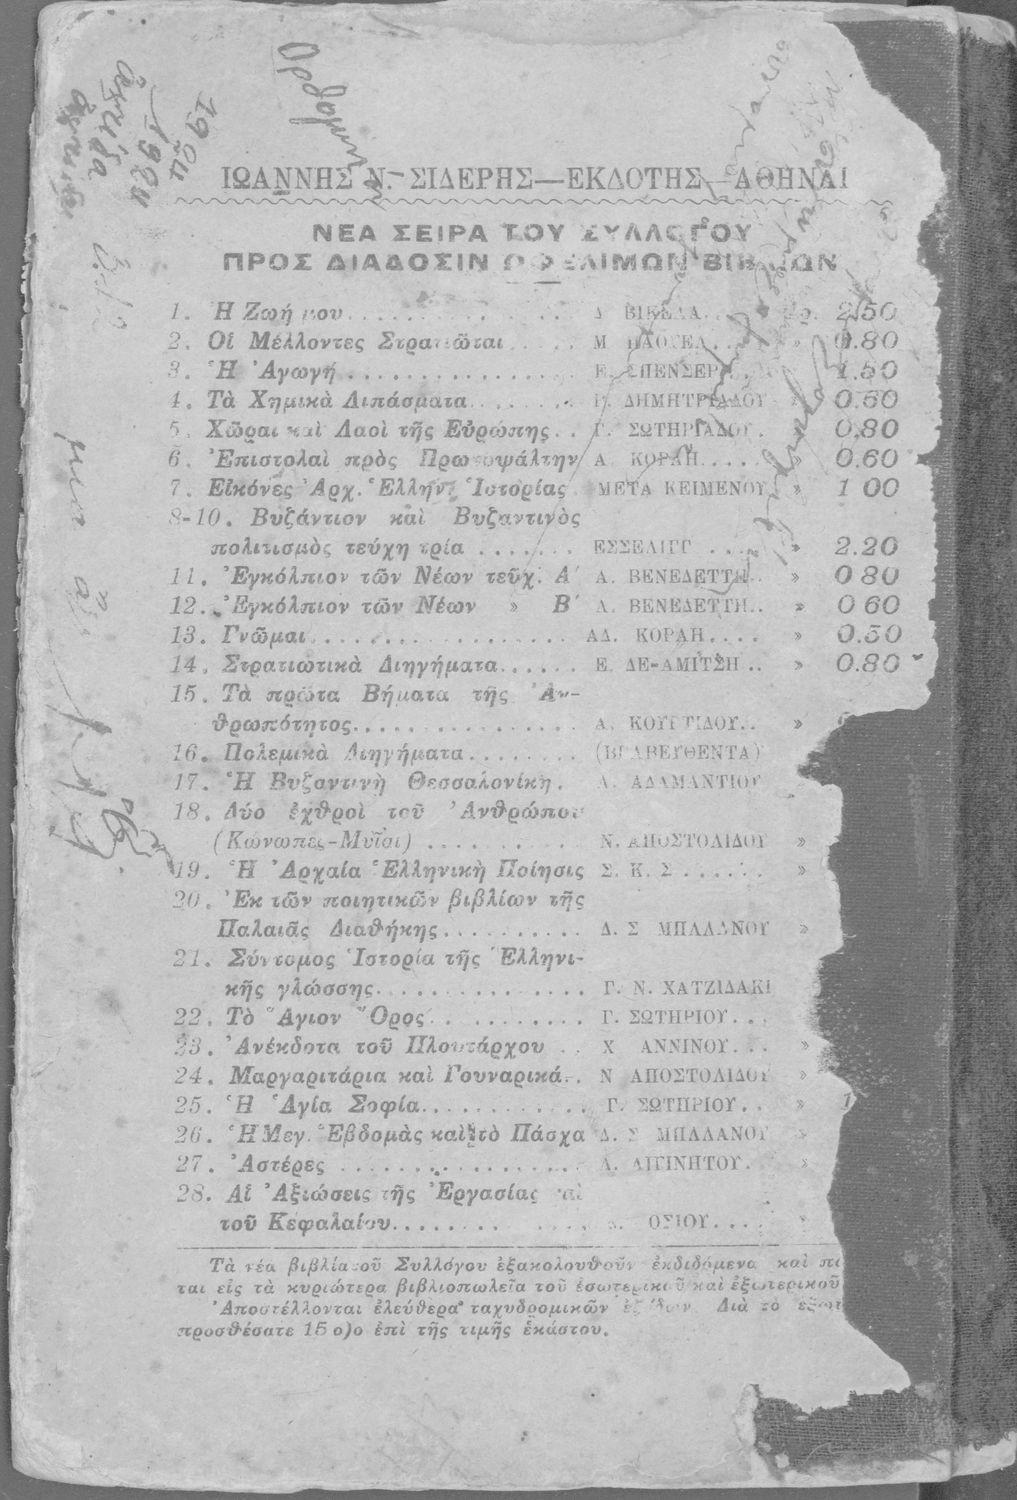 1904
Ορθομιν
ΙΩΑΝΝΗΣ Ν. ΣΙΔΕΡΗΣ—ΕΚΔΟΤΗΣ—ΑΘΗΝΑΙ
ΝΕΑ ΣΕΙΡΑ ΤΟΥ ΣΥΛΛΟΓΟΥ
ΠΡΟΣ ΔΙΑΔΟΣΙΝ ΩΦΕΛΙΜΩΝ ΒΙΒΛΙΩΝ
1. Ἡ Ζωή μου................. Δ ΒΙΚΕΛΑ... 2.50
2. Οἱ Μέλλοντες Στρατιῶται..... Μ ΠΑΟΥΕΛ.... » 0.80
3. Ἡ Ἀγωγή................. Ε. ΣΠΕΝΣΕΡ.. 1.50
4. Τὰ Χημικὰ Λιπάσματα....... Β. ΔΗΜΗΤΡΙΑΔΟΥ » 0.60
5. Χῶραι καὶ Λαοὶ τῆς Εὐρώπης.. Γ. ΣΩΤΗΡΙΑΔΟΥ. 0,80
6. Ἐπιστολαὶ πρὸς Πρωτοψάλτην Α ΚΟΡΑΗ..... 0.60
7. Εἰκόνες Ἀρχ. Ἑλλην. Ἱστορίας. ΜΕΤΑ ΚΕΙΜΕΝΟΥ » 1 00
8-10. Βυζάντιον καὶ Βυζαντινὸς
πολιτισμὸς τεύχη τρία ....... ΕΣΣΕΛΙΓΓ .... » 2.20
11. Ἐγκόλπιον τῶν Νέων τεῦχ. Α' Α. ΒΕΝΕΔΕΤΤΗ.. » 0 80
12. Ἐγκόλπιον τῶν Νέων » Β' Λ. ΒΕΝΕΔΕΤΤΗ.. » 0 60
13. Γνῶμαι.................. ΑΔ. ΚΟΡΑΗ.... » 0.50
14. Στρατιωτικὰ Διηγήματα...... Ε. ΔΕ-ΑΜΙΤΣΗ .. » 0.80
15. Τὰ πρῶτα Βήματα τῆς Ἀν-
θρωπότητος............... Α. ΚΟΥΡΤΙΔΟΥ.. »
16. Πολεμικὰ Διηγήματα........ (ΒΡΑΒΕΥΘΕΝΤΑ)
17. Ἡ Βυζαντινὴ Θεσσαλονίκη. Α. ΑΔΑΜΑΝΤΙΟΥ
18. Δύο ἐχθροὶ τοῦ Ἀνθρώπου
(Κώνωπες-Μυῖαι) .......... Ν. ΑΠΟΣΤΟΛΙΔΟΥ »
19. Ἡ Ἀρχαία Ἑλληνικὴ Ποίησις Σ. Κ. Σ ...... »
20. Ἐκ τῶν ποιητικῶν βιβλίων τῆς
Παλαιᾶς Διαθήκης.......... Δ. Σ ΜΠΑΛΑΝΟΥ »
21. Σύντομος Ἱστορία τῆς Ἑλληνι-
κῆς γλώσσης............... Γ. Ν. ΧΑΤΖΙΔΑΚΙ
22. Τὸ Ἅγιον Ὄρος........... Γ. ΣΩΤΗΡΙΟΥ...
23. Ἀνέκδοτα τοῦ Πλουτάρχου .. Χ ΑΝΝΙΝΟΥ... »
24. Μαργαριτάρια καὶ Γουναρικά.. Ν ΑΠΟΣΤΟΛΙΔΟΥ »
25. Ἡ Ἁγία Σοφία............ Γ. ΣΩΤΗΡΙΟΥ.. » 1
26. Ἡ Μεγ. Ἑβδομὰς καὶ τὸ Πάσχα Δ. Σ ΜΠΑΛΑΝΟΥ »
27. Ἀστέρες .................. Δ. ΑΙΓΙΝΗΤΟΥ. »
28. Αἱ Ἀξιώσεις τῆς Ἐργασίας καὶ
τοῦ Κεφαλαίου............. ΟΣΙΟΥ.... »
Τὰ νέα βιβλία τοῦ Συλλόγου ἐξακολουθοῦν ἐκδιδόμενα καὶ
ται εἰς τὰ κυριώτερα βιβλιοπωλεῖα τοῦ ἐσωτερικοῦ καὶ ἐξωτερικοῦ
Ἀποστέλλονται ἐλεύθερα ταχυδρομικῶν ἐξόδων. Διὰ τὸ
προσθέσατε 15 ο)ο ἐπὶ τῆς τιμῆς ἑκάστου.